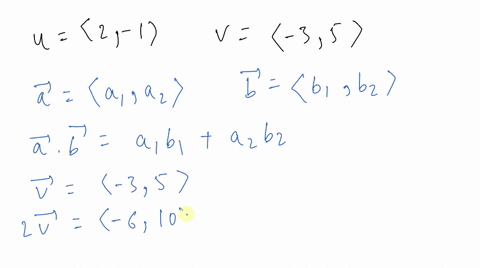 u = ⟨2, -1⟩ v = ⟨-3, 5⟩
a⃗ = ⟨a₁, a₂⟩ b⃗ = ⟨b₁, b₂⟩
a⃗ . b⃗ = a₁b₁ + a₂b₂
v⃗ = ⟨-3, 5⟩
2v⃗ = ⟨-6, 10⟩